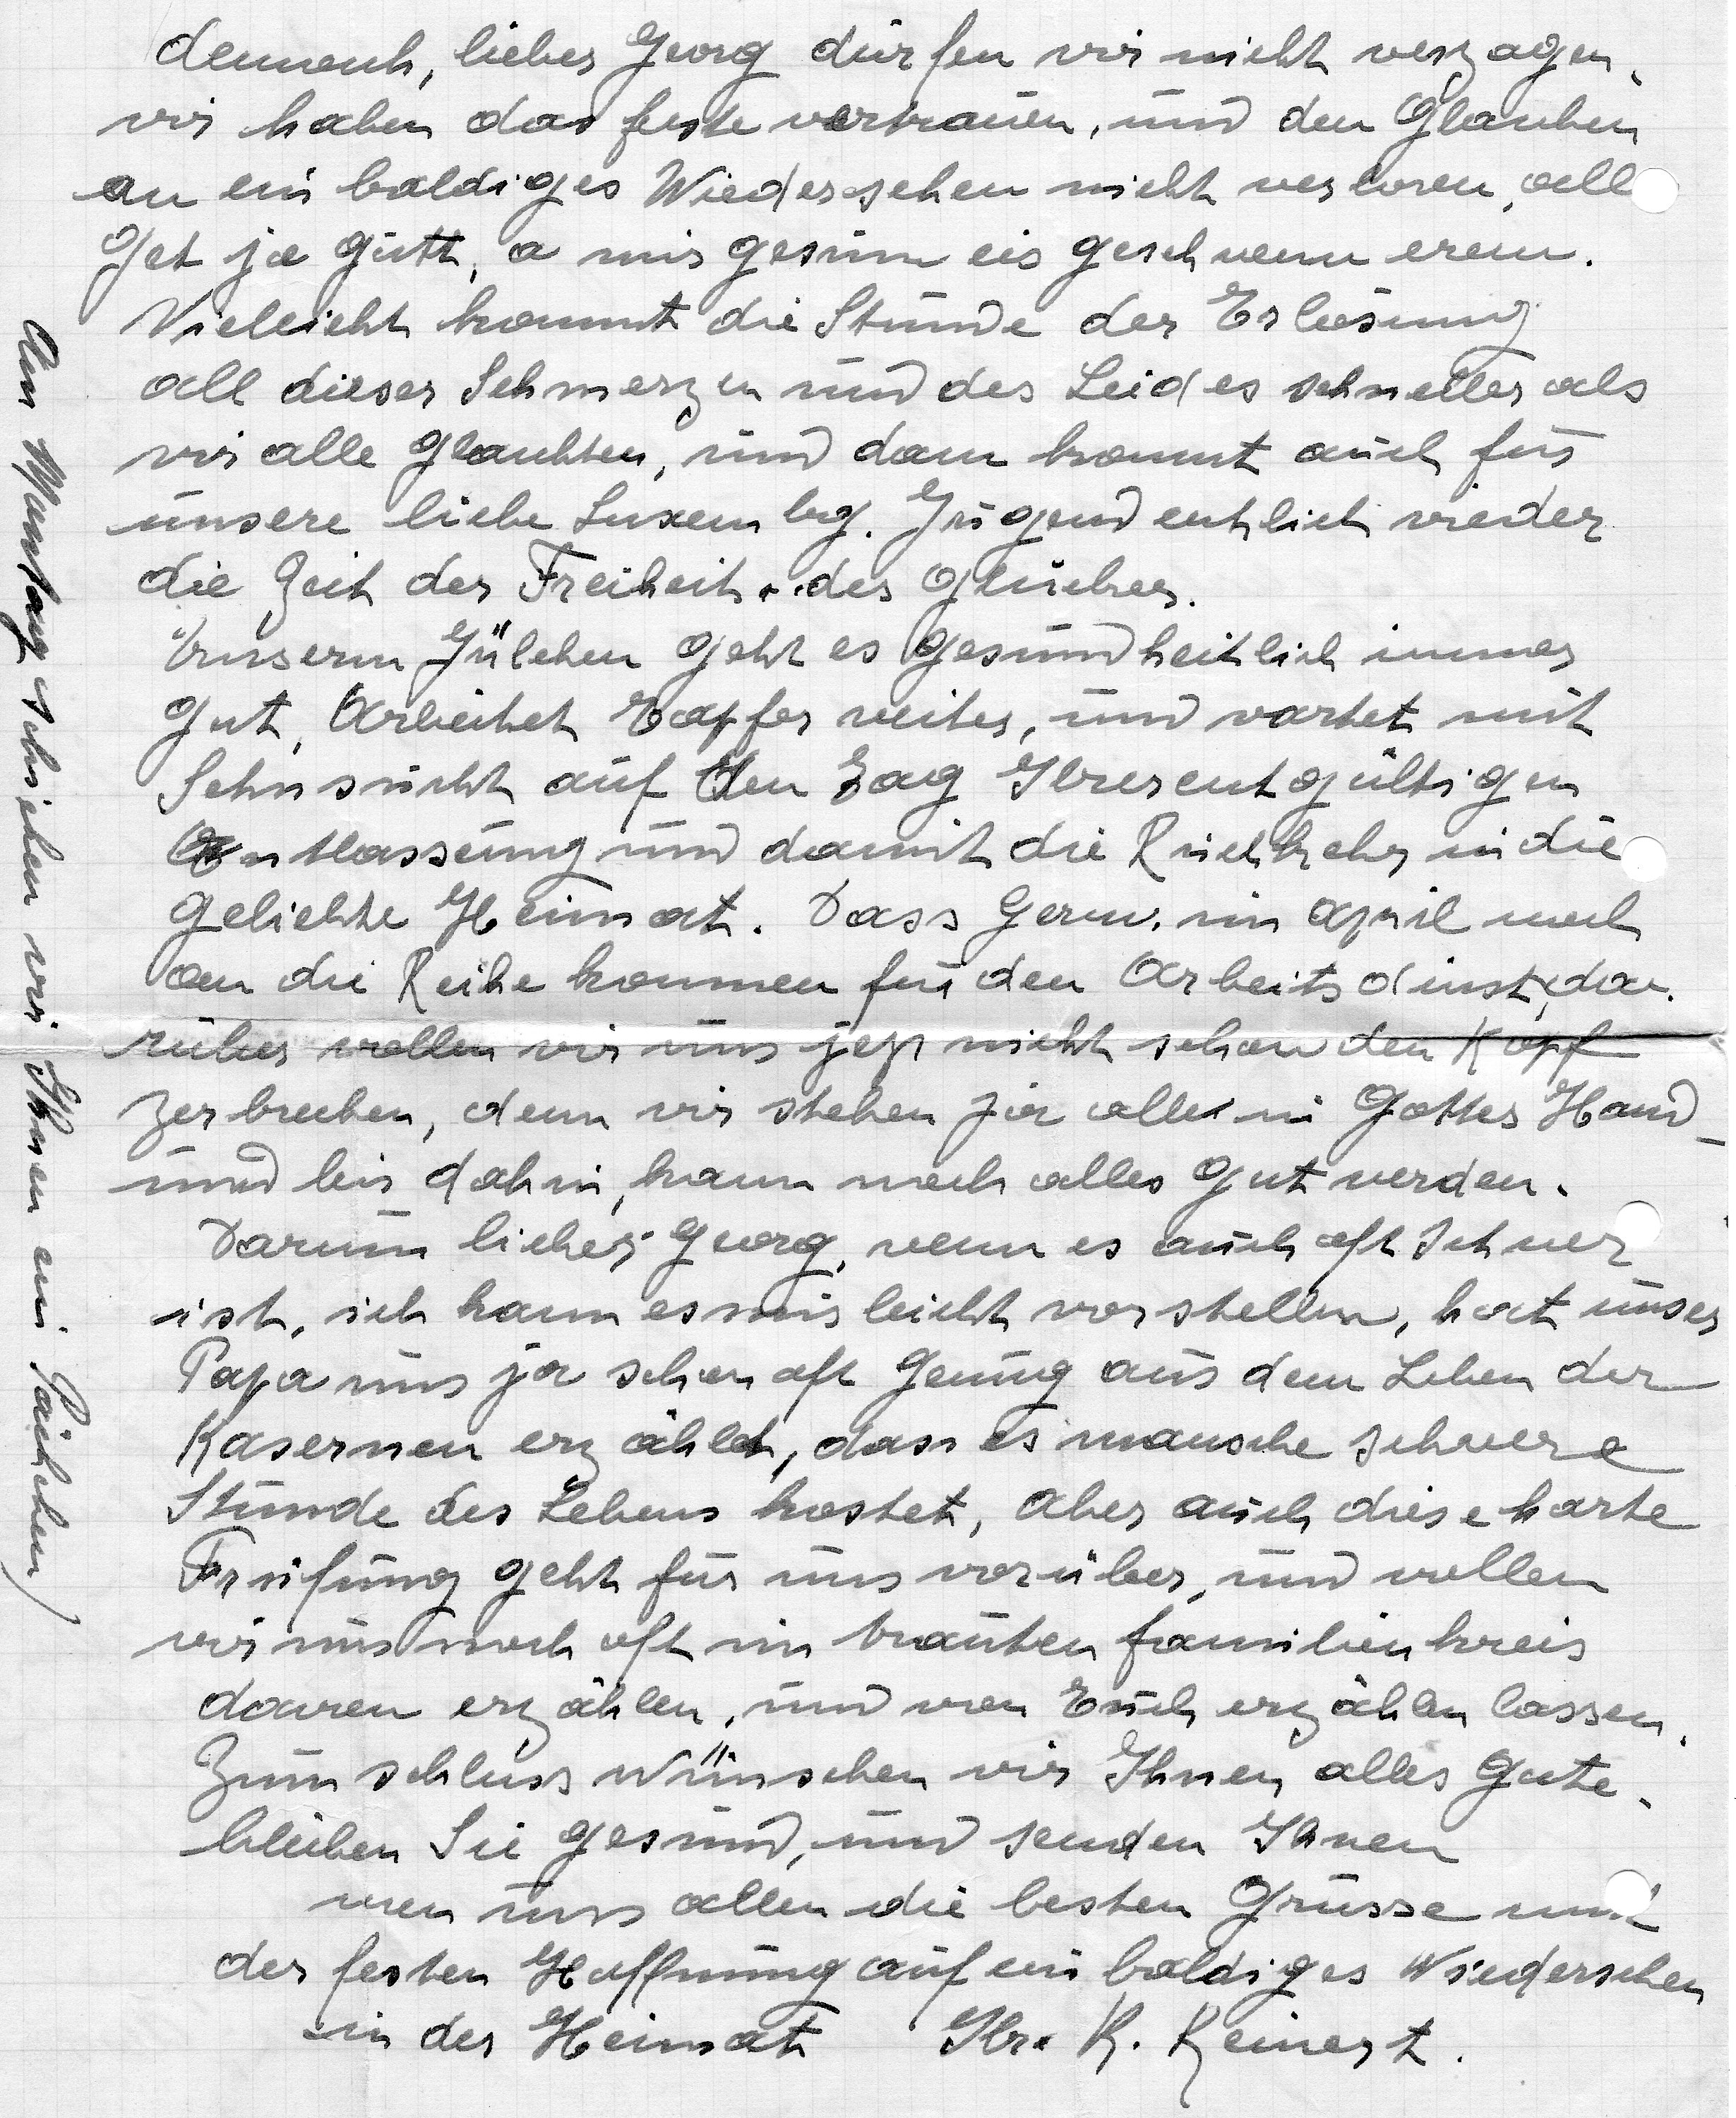 dennoch, lieber Georg dürfen wir nicht verzagen,
wir haben das feste vertrauen, und den Glauben
an ein baldiges Wiedersehen nicht verloren, all
Get ja gutt, a mir gesinn eis geschwenn erem.
Vieleicht kommt die Stunde der Erlösung
all dieser Schmerzen und des Leides schneller als
wir alle glaubten, und dann kommt auch für
unsere liebe Luxembg. Jugend entlich wieder
die Zeit der Freiheit u. des Glückes.
Unserm Jülchen geht es gesundheitlich immer
gut, Arbeitet Tapfer weiter, und wartet mit
Sehnsucht auf den Tag Ihrer entgültigen
Entlassung und damit die Rückkehr in die
geliebte Heimat. Dass Germ. im April noch
an die Reihe kommen für den Arbeitsdinst, da-
rüber wollen wir uns jezt nicht schon den Kopf
zerbrechen, denn wir stehen ja alle in Gottes Hand
und bis dahin, kann noch alles gut werden.
Darum lieber Georg, wenn es auch oft Schwer
ist, ich kann es mir leicht vorstellen, hat unser
Papa uns ja schon oft genug aus dem Leben der
Kasernen erzählt, dass es manche schwere
Stunde des Lebens kostet, aber auch diese harte
Prüfung geht für uns vorüber, und wollen
wir uns noch oft im trauten familienkreis
davon erzählen, und von Euch erzählen lassen.
Zum schluss wünschen wir Ihnen alles Gute,
bleiben Sie gesund, und senden Ihnen
von uns allen die besten Grüsse und
der festen Hoffnung auf ein baldiges Wiedersehen
in der Heimat Ihr. K. Reinert.
Am Montag schicken wir Ihnen ein Päckchen)